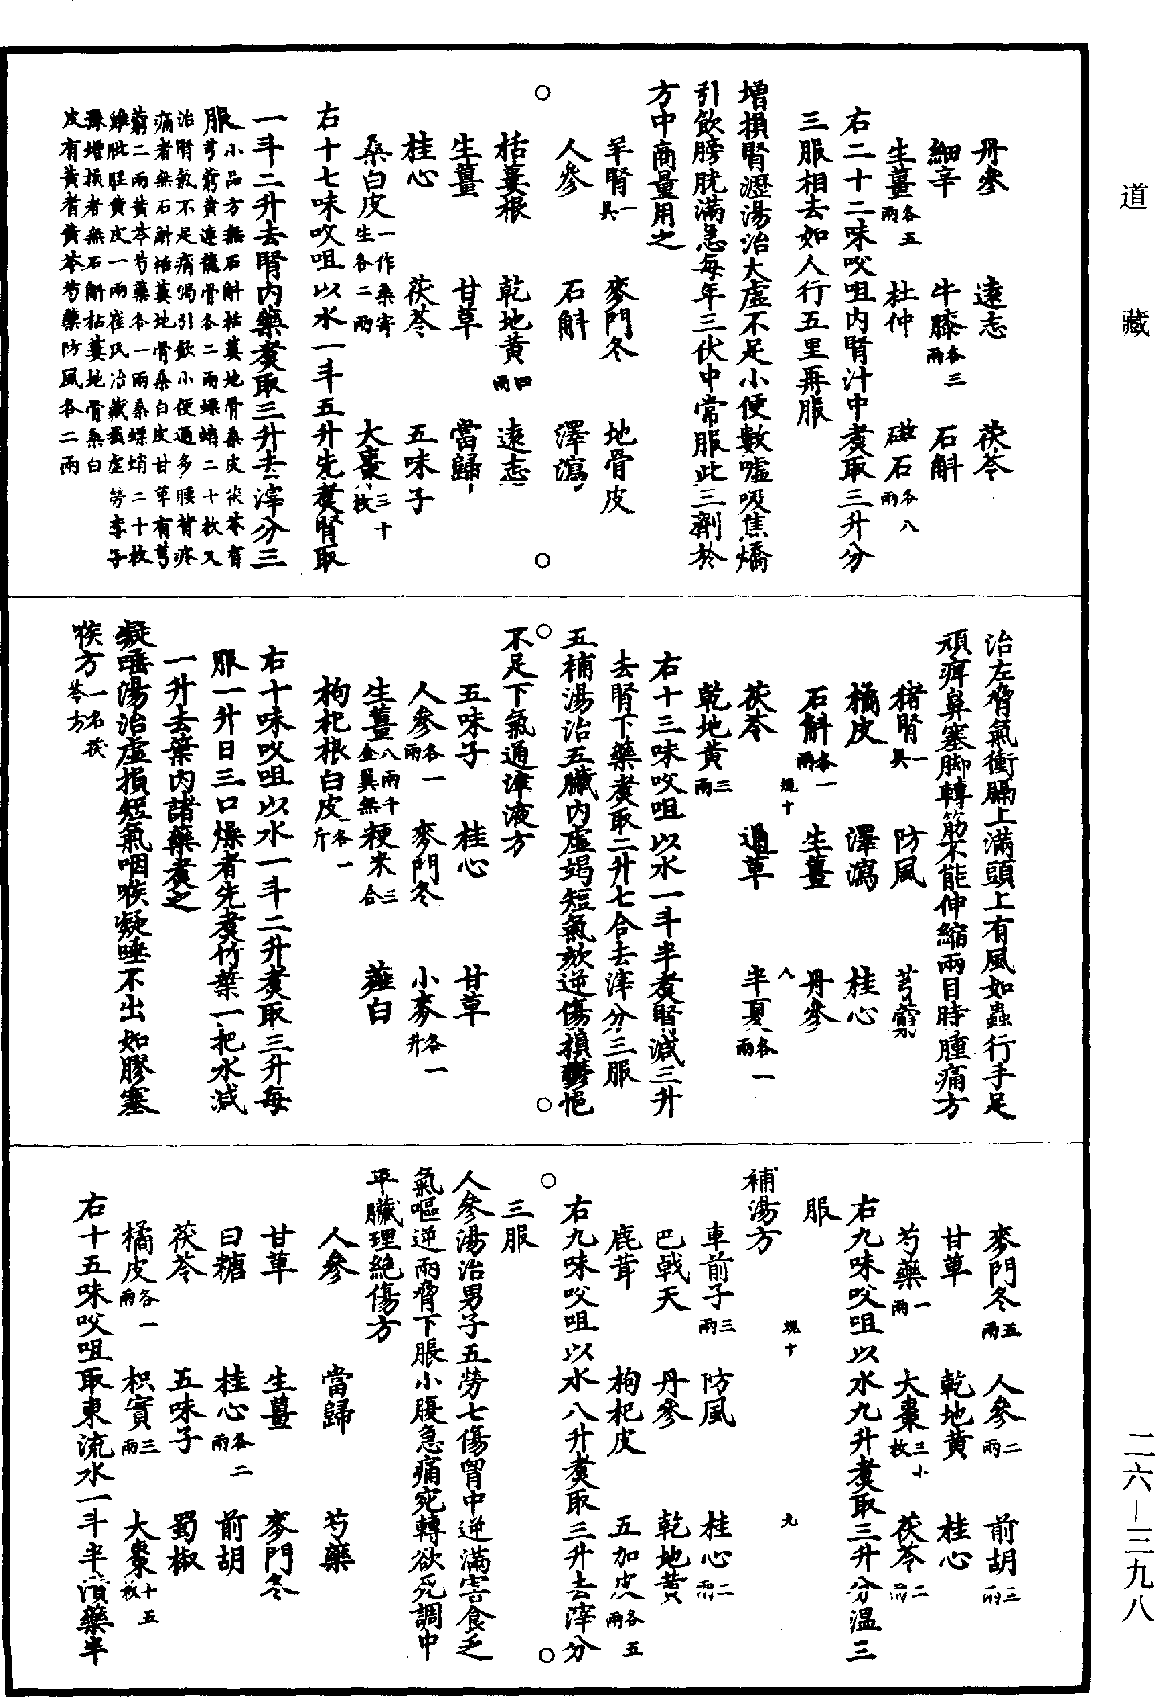 道藏
丹參　遠志　茯苓
細辛　牛膝各三兩　石斛
生薑各五兩　杜仲　磁石各八兩
右二十二味㕮咀內腎汁中煮取三升分
三服相去如人行五里再服
增損腎瀝湯治大虛不足小便數噓吸焦熇
引飲膀胱滿急每年三伏中常服此三劑於
方中商量用之
羊腎一具　麥門冬　地骨皮
人參　石斛　澤瀉
栝蔞根　乾地黃四兩　遠志
生薑　甘草　當歸
桂心　茯苓　五味子
桑白皮一作桑寄生各二兩　大棗三十枚
右十七味㕮咀以水一斗五升先煮腎取
一斗二升去腎內藥煮取三升去滓分三
服小品方無石斛栝蔞地骨桑皮茯苓有
芎藭黃連龍骨各二兩螵蛸二十枚又
治腎氣不足病渴引飲小便過多腰背疼
痛者無石斛栝蔞地骨桑白皮甘草有芎
藭二兩黃苓芍藥各一兩桑螵蛸二十枚
雞肶胵黃皮一兩崔氏治臟氣虛勞李子
豫增損者無石斛栝蔞地骨桑白
皮有黃耆黃苓芍藥防風各二兩
治左脅氣衝膈上滿頭上有風如蟲行手足
頑痺鼻塞腳轉筋不能伸縮兩目時腫痛方
猪腎一具　防風　芎藭
橘皮　澤瀉　桂心
石斛各一兩　生薑　丹參
規十　八
茯苓　通草　半夏各一兩
乾地黃三兩
右十三味㕮咀以水一斗半煮腎減三升
去腎下藥煮取二升七合去滓分三服
五補湯治五臟內虛竭短氣欬逆傷損鬱悒
不足下氣通津液方
五味子　桂心　甘草
人參各一兩　麥門冬　小麥各一升
生薑八兩千金翼無　粳米三合　薤白
枸杞根白皮各一斤
右十味㕮咀以水一斗二升煮取三升每
服一升日三口燥者先煮竹葉一把水減
一升去葉內諸藥煮之
凝唾湯治虛損短氣咽喉凝唾不出如膠塞
喉方一名茯苓方
麥門冬五兩　人參二兩　前胡三兩
甘草　乾地黃　桂心
芍藥一兩　大棗三十枚　茯苓二兩
右九味㕮咀以水九升煮取三升分溫三
服
規十　九
補湯方
車前子三兩　防風　桂心二兩
巴戟天　丹參　乾地黃
鹿茸　枸杞皮　五加皮各五兩
右九味㕮咀以水八升煮取三升去滓分
三服
人參湯治男子五勞七傷胷中逆滿害食乏
氣嘔逆兩脅下脹小腹急痛宛轉欲死調中
平臟理絕傷方
人參　當歸　芍藥
甘草　生薑　麥門冬
白糖　桂心各二兩　前胡
茯苓　五味子　蜀椒
橘皮各一兩　枳實三兩　大棗十五枚
右十五味㕮咀取東流水一斗半漬藥半
二六—三九八